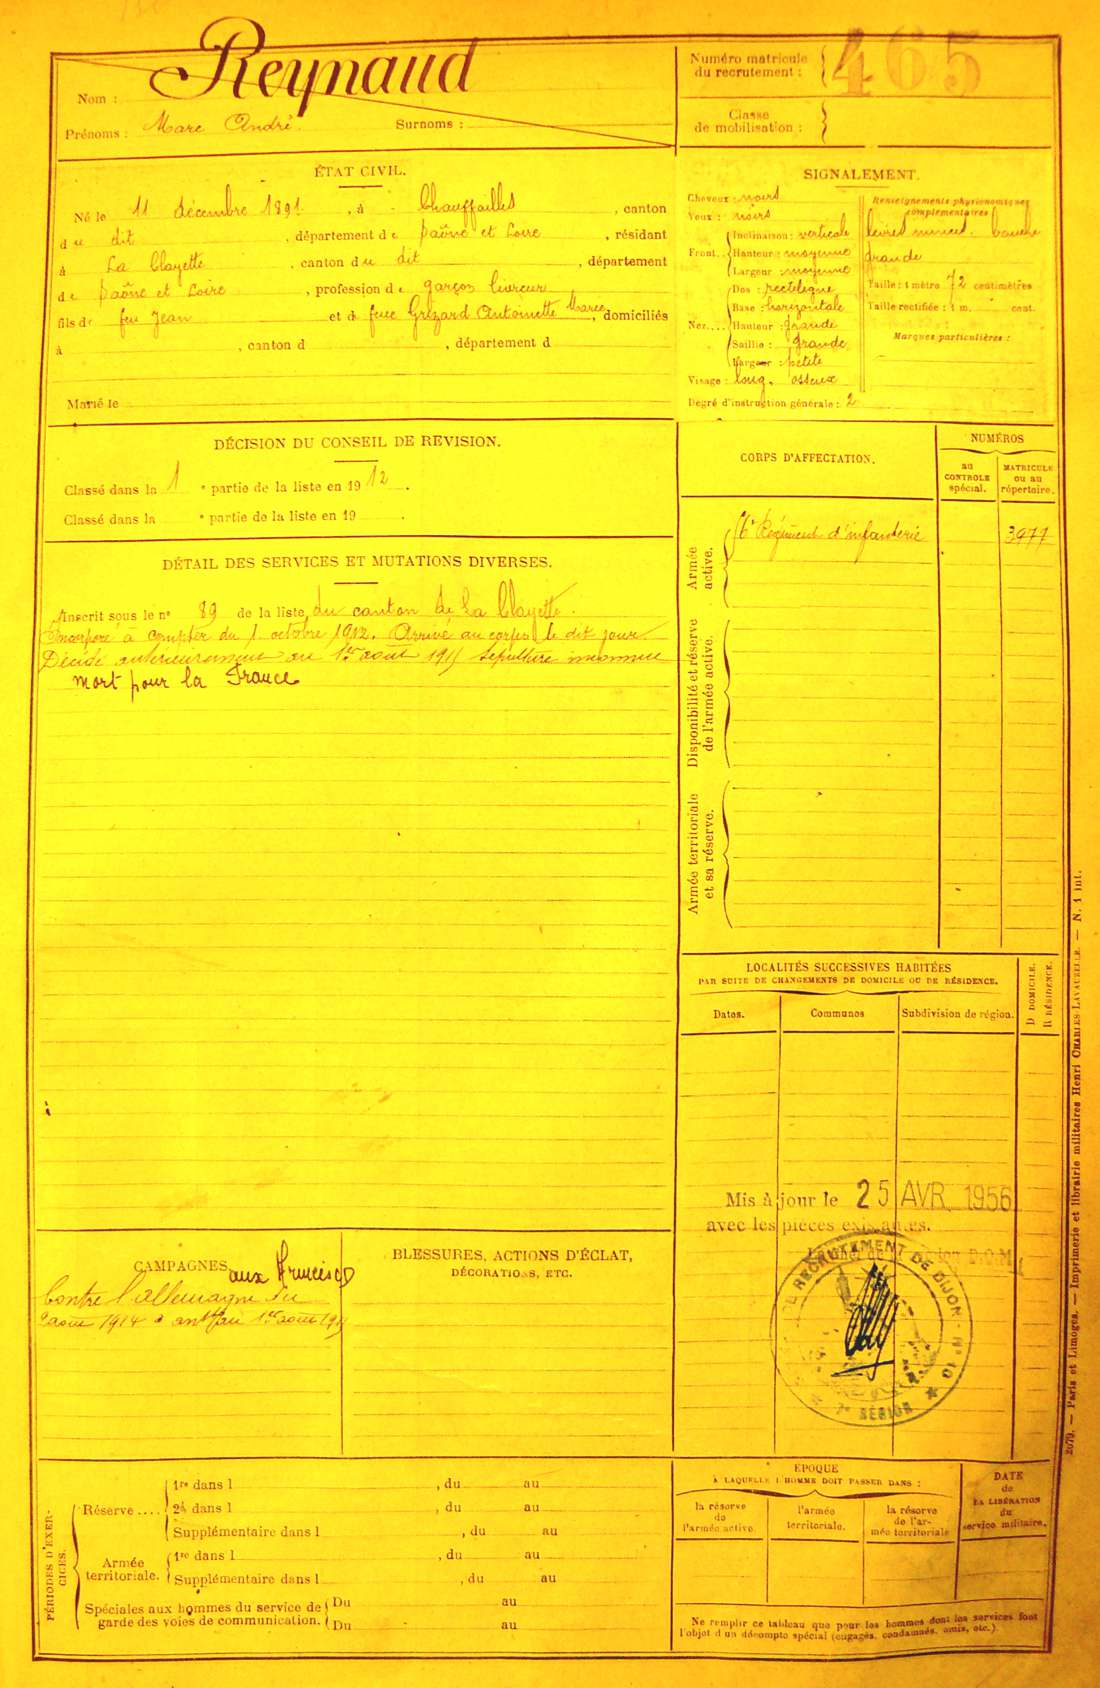 Reynaud
Nom :
Prénoms : Marc André. Surnoms :
Numéro matricule
du recrutement : 465
Classe
de mobilisation :
ÉTAT CIVIL.
Né le 11 décembre 1891, à Chauffailles, canton
du dit, département de Saône et Loire, résidant
à La Clayette, canton du dit, département
de Saône et Loire, profession de garçon livreur
fils de feu Jean et de feue Grizard Antoinette Marie, domiciliés
à , canton d , département d
Marié le
SIGNALEMENT.
Cheveux : noirs
Yeux : noirs
Front. Inclinaison : verticale
Hauteur : moyenne
Largeur : moyenne
Nez. Dos : rectiligne
Base : horizontale
Hauteur : grande
Saillie : grande
Largeur : petite
Visage : long, osseux
Degré d'instruction générale : 2
Renseignements physionomiques
complémentaires
lèvres minces. bouche
grande
Taille : 1 mètre 72 centimètres
Taille rectifiée : 1 m. cent.
Marques particulières :
DÉCISION DU CONSEIL DE REVISION.
Classé dans la 1 e partie de la liste en 1912.
Classé dans la e partie de la liste en 19 .
DÉTAIL DES SERVICES ET MUTATIONS DIVERSES.
Inscrit sous le n° 89 de la liste du canton de La Clayette.
Incorporé à compter du 1 octobre 1912. Arrivé au corps le dit jour.
Décédé antérieurement au 1er août 1915 sépulture inconnue
Mort pour la France
CORPS D'AFFECTATION.
NUMÉROS
au
CONTROLE
spécial.
MATRICULE
ou au
répertoire.
Armée
active.
Régiment d'infanterie 3977
Disponibilité et réserve
de l'armée active.
Armée territoriale
et sa réserve.
LOCALITÉS SUCCESSIVES HABITÉES
PAR SUITE DE CHANGEMENTS DE DOMICILE OU DE RÉSIDENCE.
Dates. Communes Subdivision de région.
D DOMICILE.
R RÉSIDENCE.
Mis à jour le 25 AVR. 1956
avec les pièces existantes.
RECRUTEMENT DE DIJON · N° 10
7e RÉGION
CAMPAGNES.
Contre l'Allemagne du
2 août 1914 à 1er août 1915
BLESSURES, ACTIONS D'ÉCLAT,
DÉCORATIONS, ETC.
PÉRIODES D'EXER-
CICES.
Réserve .... 1re dans l , du au
2e dans l , du au
Supplémentaire dans l , du au
Armée
territoriale. 1re dans l , du au
Supplémentaire dans l , du au
Spéciales aux hommes du service de
garde des voies de communication. Du au
Du au
ÉPOQUE
À LAQUELLE L'HOMME DOIT PASSER DANS :
la réserve
de
l'armée active.
l'armée
territoriale.
la réserve
de l'ar-
mée territoriale
DATE
de
LA LIBÉRATION
du
service militaire.
Ne remplir ce tableau que pour les hommes dont les services font
l'objet d'un décompte spécial (engagés, condamnés, omis, etc.).
2079. — Paris et Limoges. — Imprimerie et librairie militaires Henri CHARLES-LAVAUZELLE. — N. 1 int.